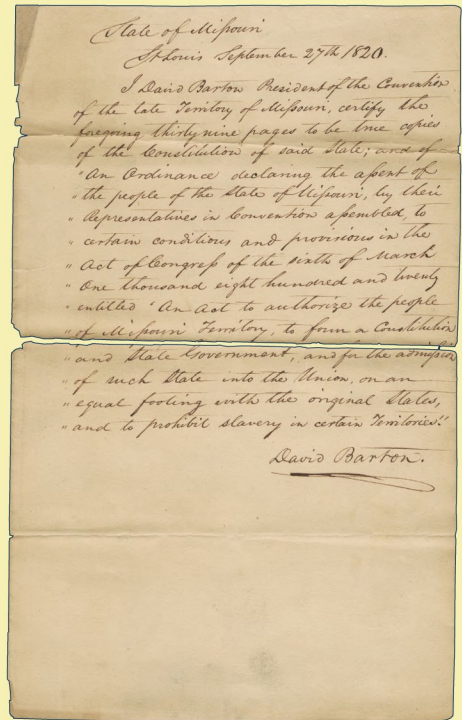 State of Missouri
St Louis September 27th 1820.
I David Barton President of the Convention
of the late Territory of Missouri, certify the
foregoing thirty nine pages to be true copies
of the Constitution of said State; and of
"An Ordinance declaring the assent of
" the people of the State of Missouri, by their
" Representatives in Convention assembled, to
" certain conditions and provisions in the
" Act of Congress of the sixth of March
" One thousand eight hundred and twenty
" entitled "An act to authorize the people
" of Missouri Territory, to form a Constitution
" and State Government, and for the admission
" of such State into the Union, on an
" equal footing with the original States,
" and to prohibit slavery in certain Territories."
David Barton.